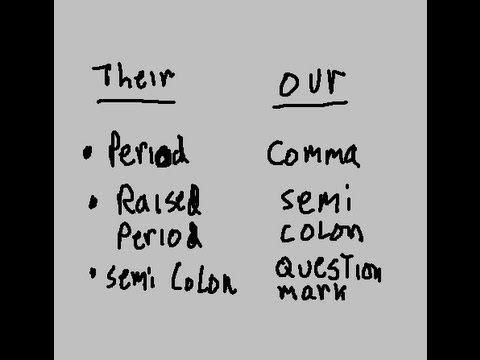 Their our
• Period comma
• Raised semi
Period colon
• semi colon question
mark